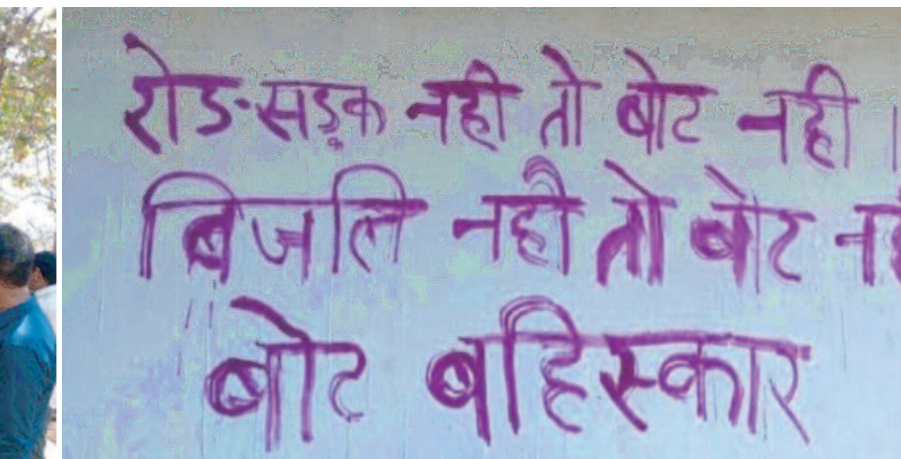 रोड-सड़क नही तो बोट नही ।
बिजलि नही तो बोट
बोट बहिस्कार